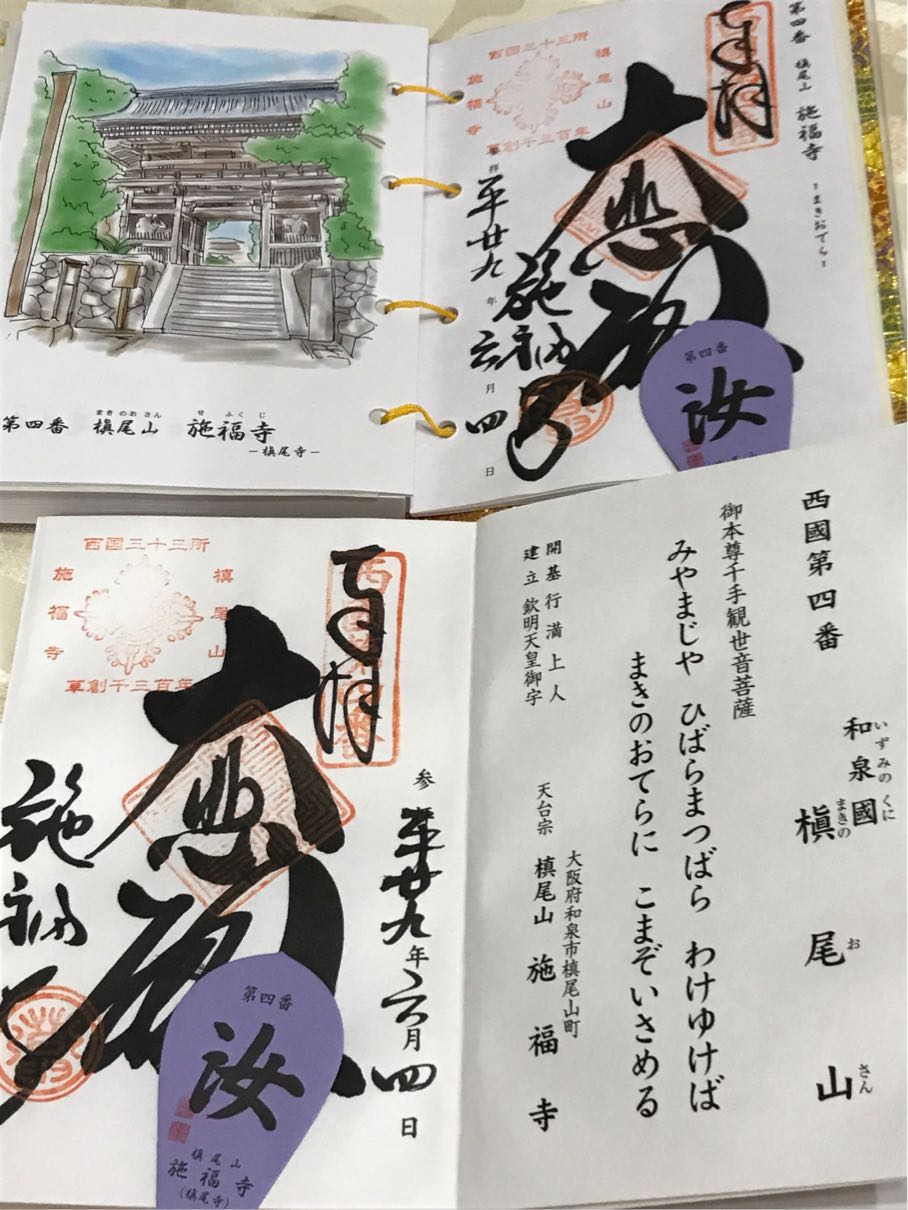 第四番 槇尾山 施福寺
まきのおさん
せふくじ
－槇尾寺－
第四番 槇尾山 施福寺 －まきおてら－
奉拝
西国三十三所
槇尾山
施福寺
草創千三百年
大悲殿
平廿九年六月四日
施福寺
第四番
汝
西国三十三所
槇尾山
施福寺
草創千三百年
奉拝
大悲殿
参
平廿九年六月四日
施福寺
第四番
汝
槇尾山
施福寺
(槇尾寺)
西國第四番
和泉國
いずみの くに
槇尾山
まきの お さん
御本尊千手観世音菩薩
みやまじや ひばらまつばら わけゆけば
まきのおてらに こまぞいさめる
開基 行満上人
建立 欽明天皇御宇
大阪府和泉市槙尾山町
天台宗 槙尾山 施福寺